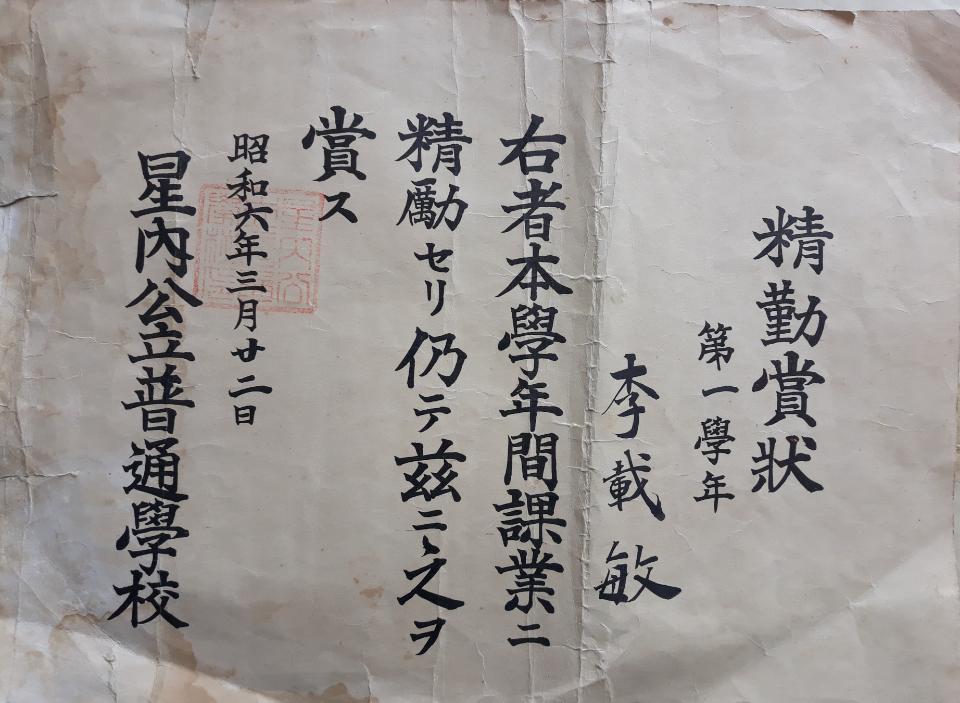 精勤賞狀
第一學年
李載敏
右者本學年間課業ニ
精勵セリ仍テ茲ニ之ヲ
賞ス
昭和六年三月廿二日
星內公立普通學校